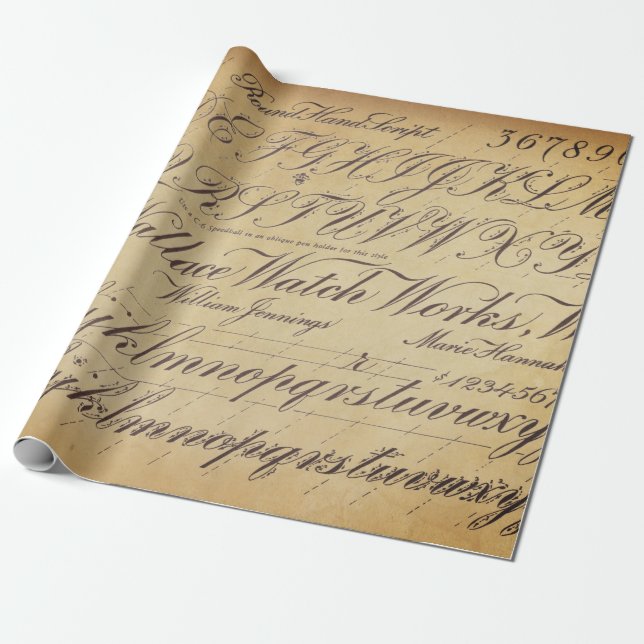 Round Hand Script
367890
C E F G H I J K L M
Q R S T U V W X Y Z
Use a C-6 Speedball in an oblique pen holder for this style
Wallace Watch Works, W
William Jennings
Marie Hannah
r
$1234567
y k l m n o p q r s t u v w x y
y k l m n o p q r s t u v w x y